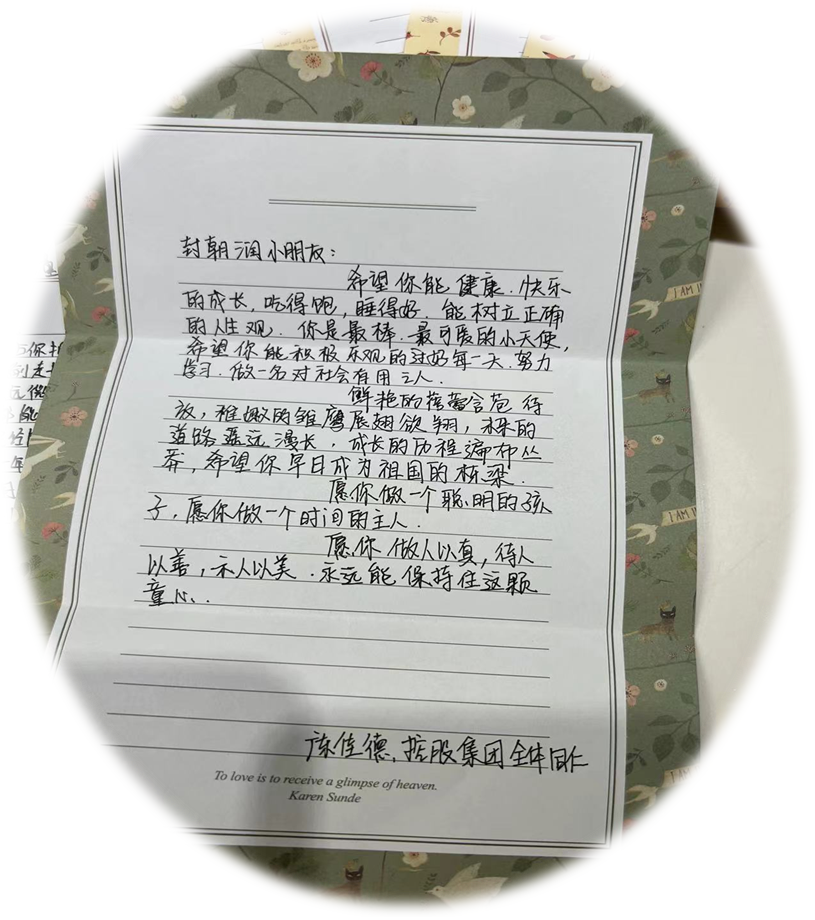 封朝润小朋友：
希望你能健康．快乐
的成长，吃得饱，睡得好．能树立正确
的人生观．你是最棒．最可爱的小天使，
希望你能积极乐观的过好每一天．努力
学习．做一名对社会有用之人．
鲜艳的蓓蕾含苞待
放，稚嫩的雏鹰展翅欲翔，未来的
道路遥远漫长，成长的历程遍布丛
莽，希望你早日成为祖国的栋梁．
愿你做一个聪明的孩
子．愿你做一个时间的主人．
愿你做人以真，待人
以善，示人以美．永远能保持住这颗
童心．
佳德．控股集团全体同仁
To love is to receive a glimpse of heaven.
Karen Sunde
I AM
I AM